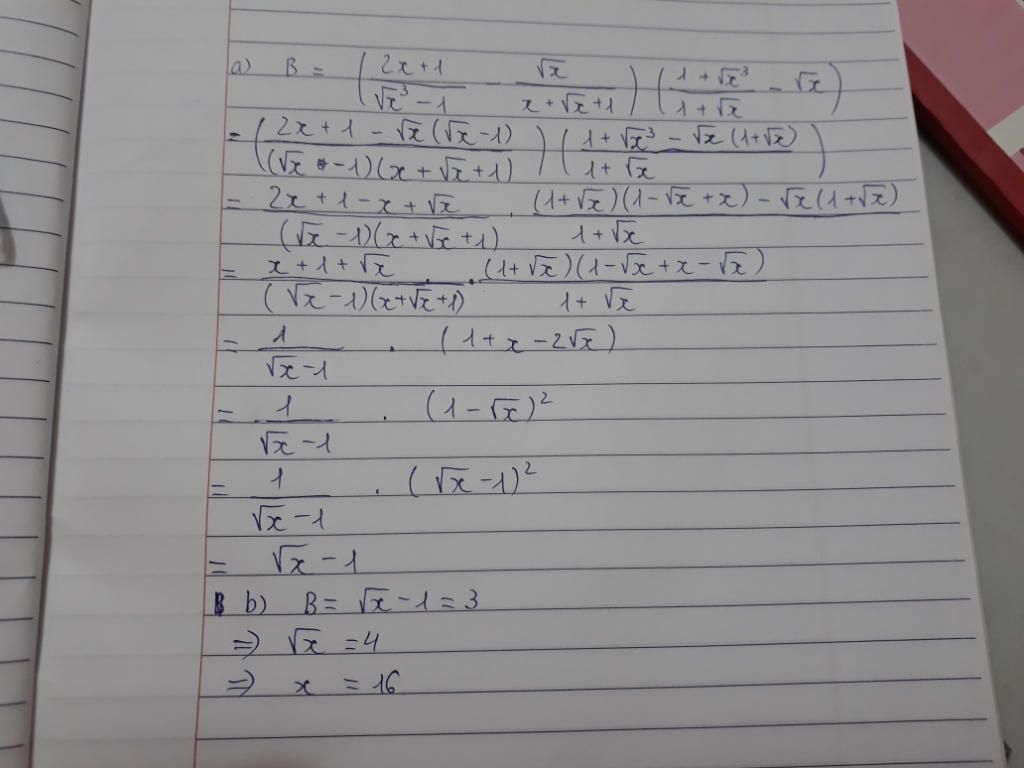 a) B = ( (2x+1)/(√x³ - 1) - √x/(x+√x+1) ) ( (1+√x³)/(1+√x) - √x )
= ( (2x+1-√x(√x-1))/((√x-1)(x+√x+1)) ) ( (1+√x³-√x(1+√x))/(1+√x) )
= (2x+1-x+√x)/((√x-1)(x+√x+1)) . ((1+√x)(1-√x+x)-√x(1+√x))/(1+√x)
= (x+1+√x)/((√x-1)(x+√x+1)) . ((1+√x)(1-√x+x-√x))/(1+√x)
= 1/(√x-1) . (1+x-2√x)
= 1/(√x-1) . (1-√x)²
= 1/(√x-1) . (√x-1)²
= √x-1
b) B = √x-1 = 3
⇒ √x = 4
⇒ x = 16